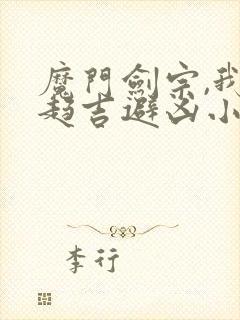 魔門劍宗,我
趨吉避凶小
李行